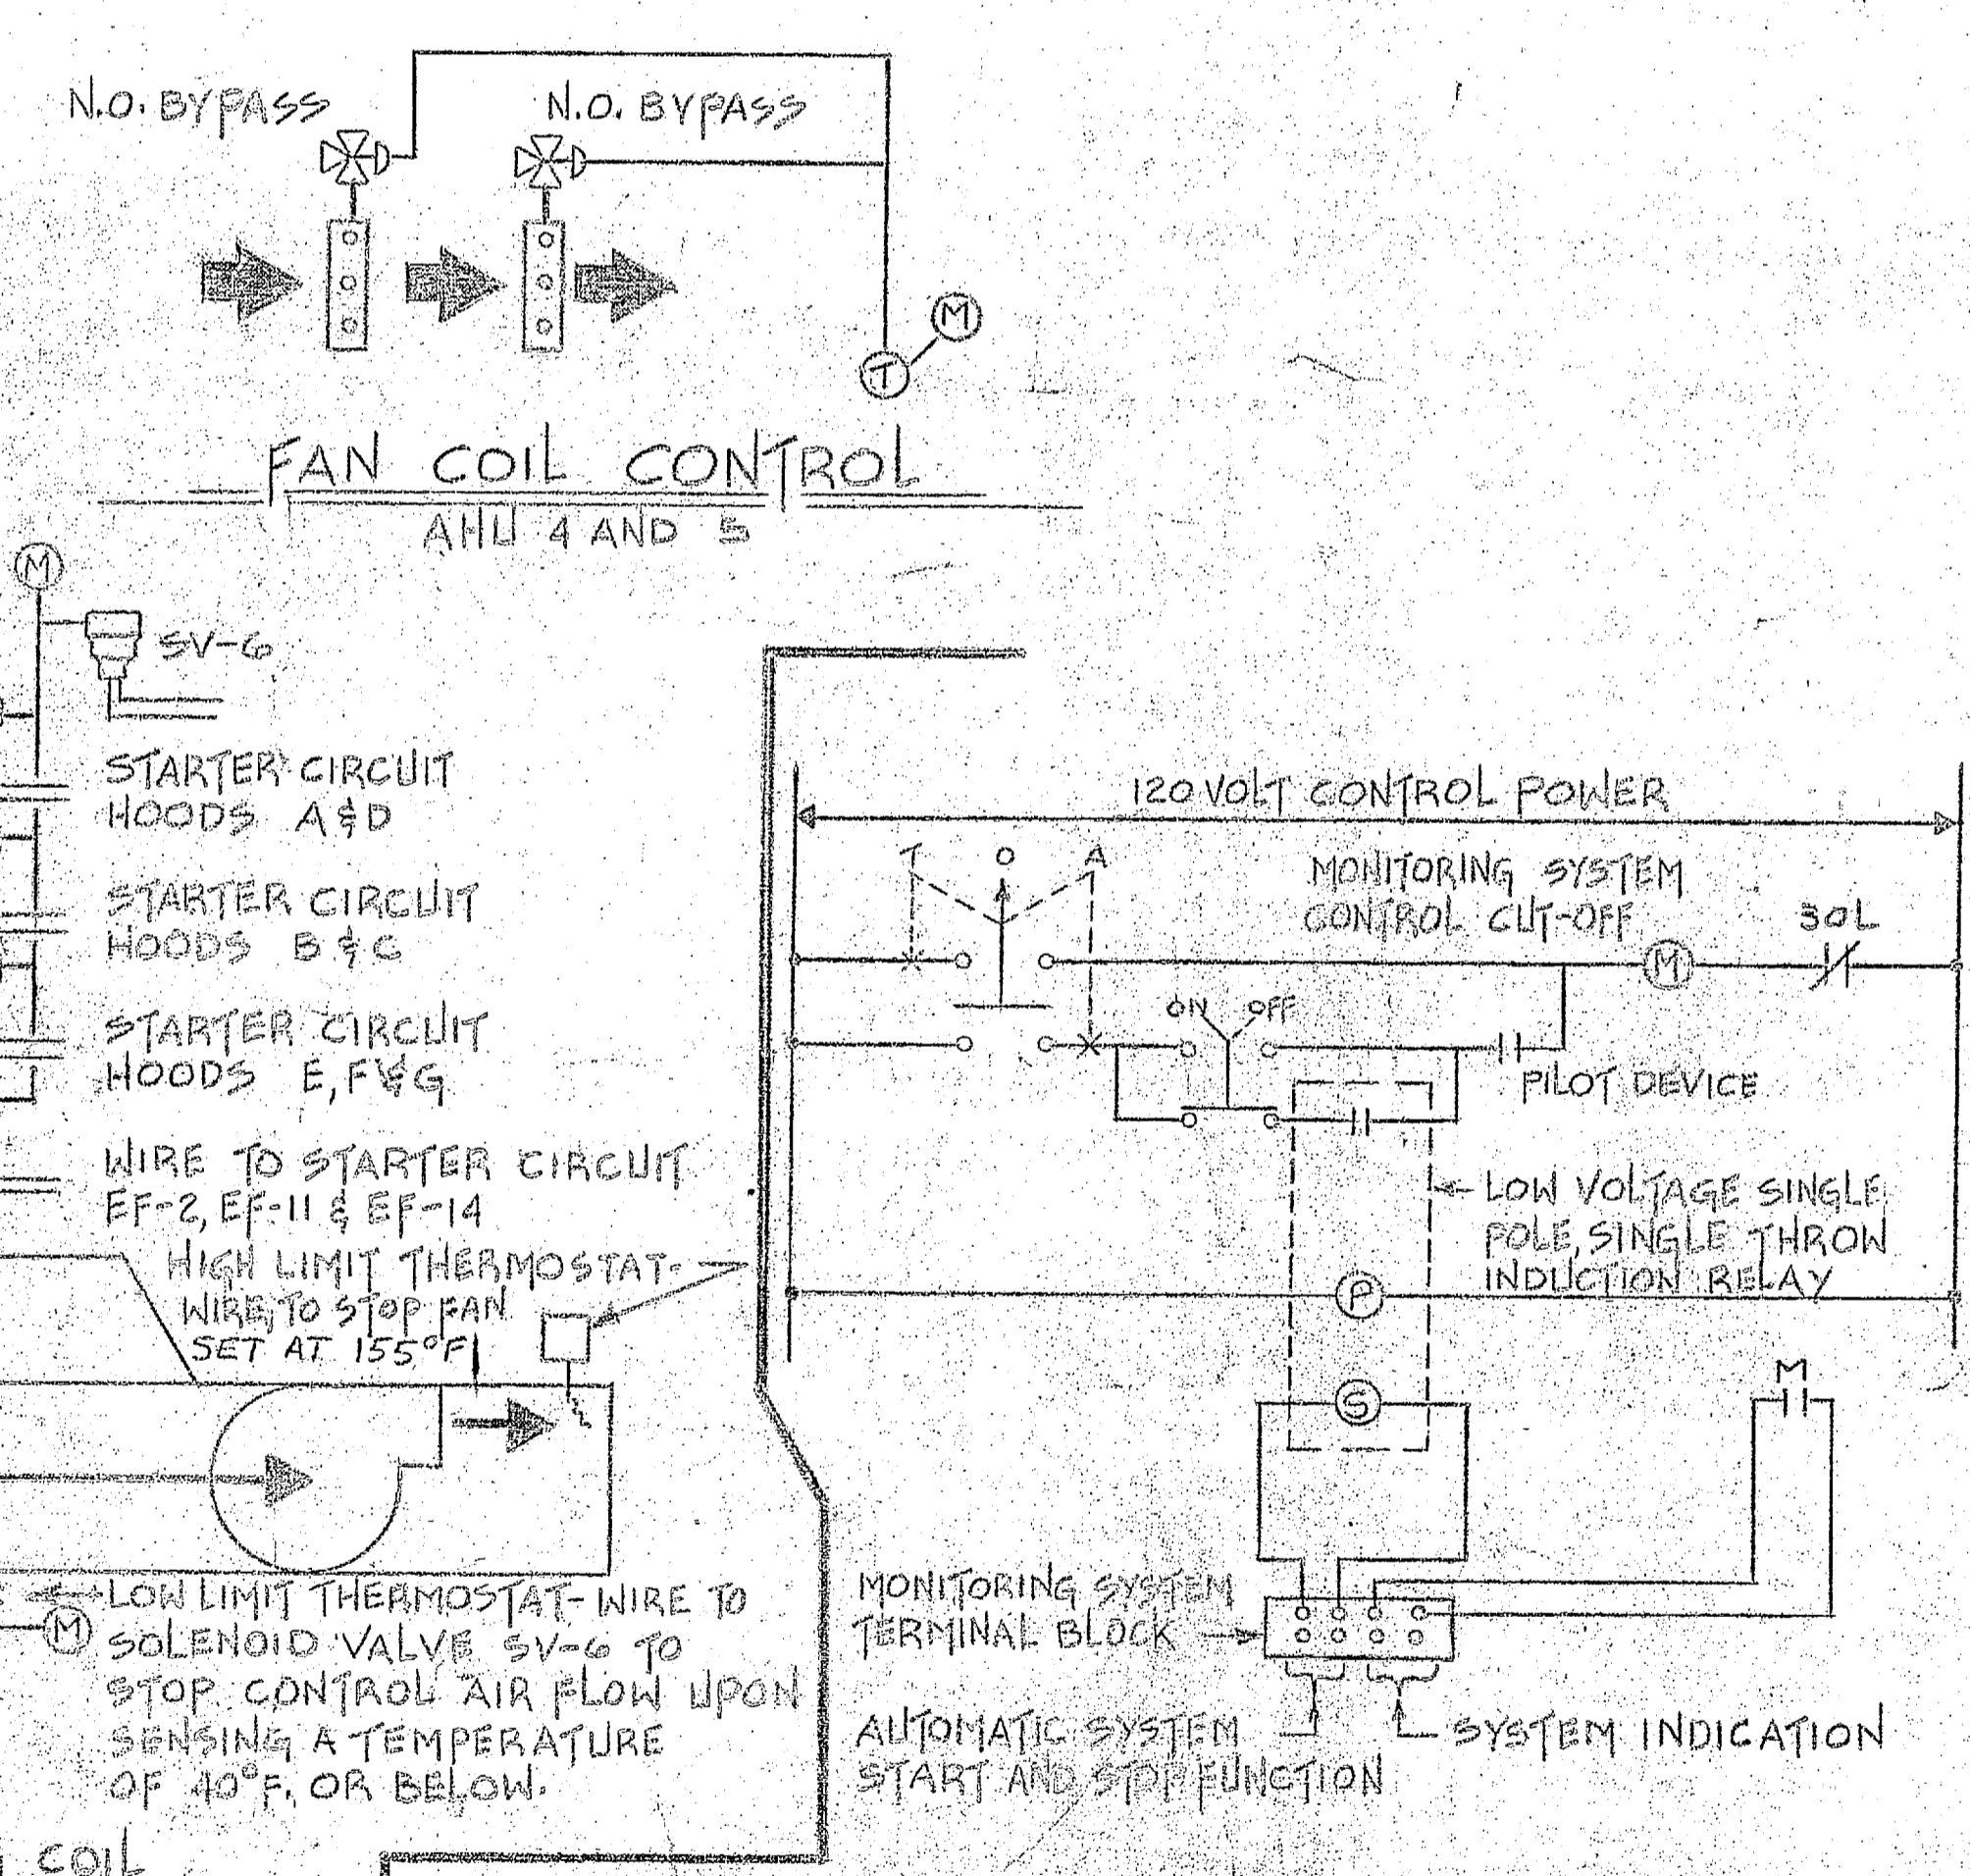 N.O. BYPASS
N.O. BYPASS
M
T
FAN COIL CONTROL
AHU 4 AND 5
M
SV-6
STARTER CIRCUIT
HOODS A & D
STARTER CIRCUIT
HOODS B & C
STARTER CIRCUIT
HOODS E, F & G
WIRE TO STARTER CIRCUIT
EF-2, EF-11 & EF-14
HIGH LIMIT THERMOSTAT-
WIRE, TO STOP FAN
SET AT 155°F
M
LOW LIMIT THERMOSTAT- WIRE TO
SOLENOID VALVE SV-6 TO
STOP CONTROL AIR FLOW UPON
SENSING A TEMPERATURE
OF 40°F. OR BELOW.
COIL
120 VOLT CONTROL POWER
T O A
MONITORING SYSTEM
CONTROL CUT-OFF
3OL
M
ON OFF
PILOT DEVICE
LOW VOLTAGE SINGLE
POLE, SINGLE THROW
INDUCTION RELAY
P
S
M
MONITORING SYSTEM
TERMINAL BLOCK
AUTOMATIC SYSTEM
START AND STOP FUNCTION
SYSTEM INDICATION